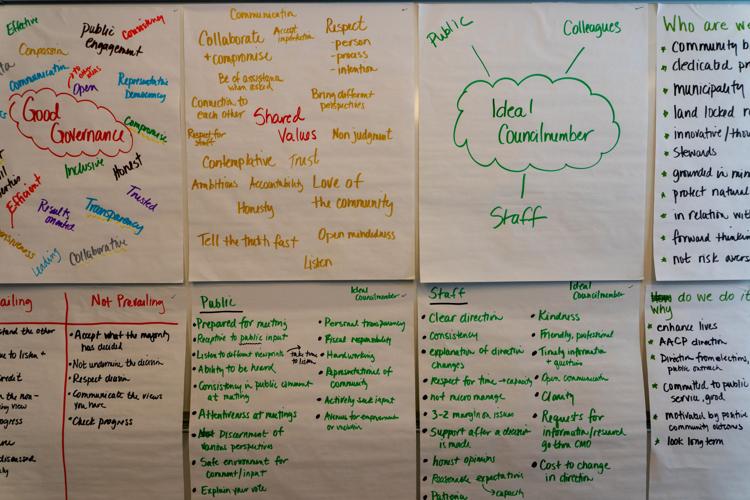 Effective
Public
engagement
Consistency
Compassion
Communication
to other
ideas
Open
Representative
Democracy
Good
Governance
Compromise
Inclusive
Honest
Efficient
Results
oriented
Trusted
Transparency
Leading
Collaborative
Communication
Collaborate
+ compromise
Accept
imperfection
Respect
- person
- process
- intention
Be of assistance
when asked
Connection to
each other
Bring different
perspectives
Shared
Values
Respect for
staff
Non judgment
Contemplative
Trust
Ambitious
Accountability
Love of
the community
Honesty
Tell the truth fast
Open mindedness
Listen
Public
Colleagues
Ideal
Councilmember
Staff
Who are we
community b
dedicated pr
municipality
land locked r
innovative/thou
Stewards
grounded in mun
protect natural
in relation with
forward thinking
not risk averse
ailing
tand the other
e to listen +
redit
n the non-
ing view
ogress
discussed
Not Prevailing
• Accept what the majority
has decided
• Not undermine the decision
• Respect decision
• Communicate the views
you have
• Check progress
Public
Ideal
Councilmember
• Prepared for meeting
• Receptive to public input
• Listen to different viewpoints
take time
to listen
• Ability to be heard
• Consistency in public comment
at meeting
• Attentiveness at meetings
• Discernment of
various perspectives
• Safe environment for
comment/input
• Explain your vote
• Personal transparency
• Fiscal responsibility
• Hardworking
• Representational of
community
• Actively seek input
• Avenues for empowerment
Staff
Ideal
Councilmember
• Clear direction
• Consistency
• explanation of direction
changes
• Respect for time → capacity
• not micro manage
• 3-2 margin on issues
• Support after a decision
is made
• honest opinions
• Reasonable expectations
→ capacity
• Kindness
• Friendly, professional
• Timely information
+ questions
• Open communication
• Clarity
• Requests for
information/research
go thru CMO
• Cost to change
in direction
How do we do it
Why
enhance lives
AACP direction
Direction from election,
public outreach
committed to public
service, good
motivated by positive
community outcomes
look long term